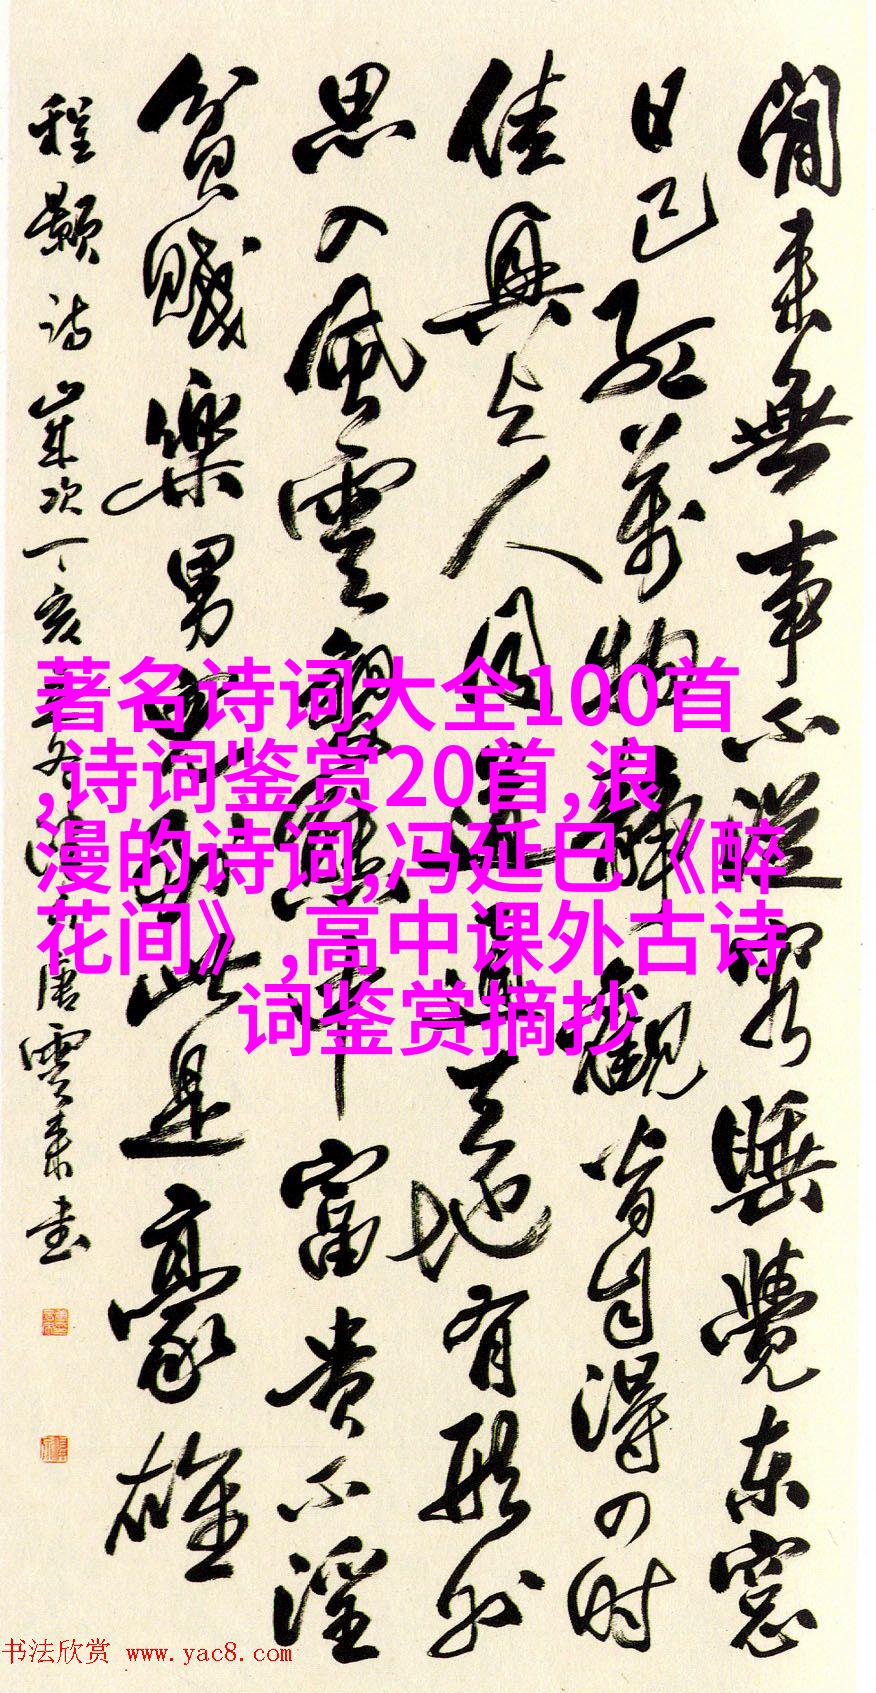 閒来無事不從容睡覺东窓
日已紅萬物靜觀皆自得四时
佳興与人同道通天地有形外
思入風雲變態中富貴不淫
貧賤樂男兒到此是豪雄
程颢诗歲次丁亥唐雲来書
著名诗词大全100首
,诗词鉴赏20首,浪
漫的诗词,冯延巳《醉
花间》,高中课外古诗
词鉴赏摘抄
书法欣赏 www.yac8.com